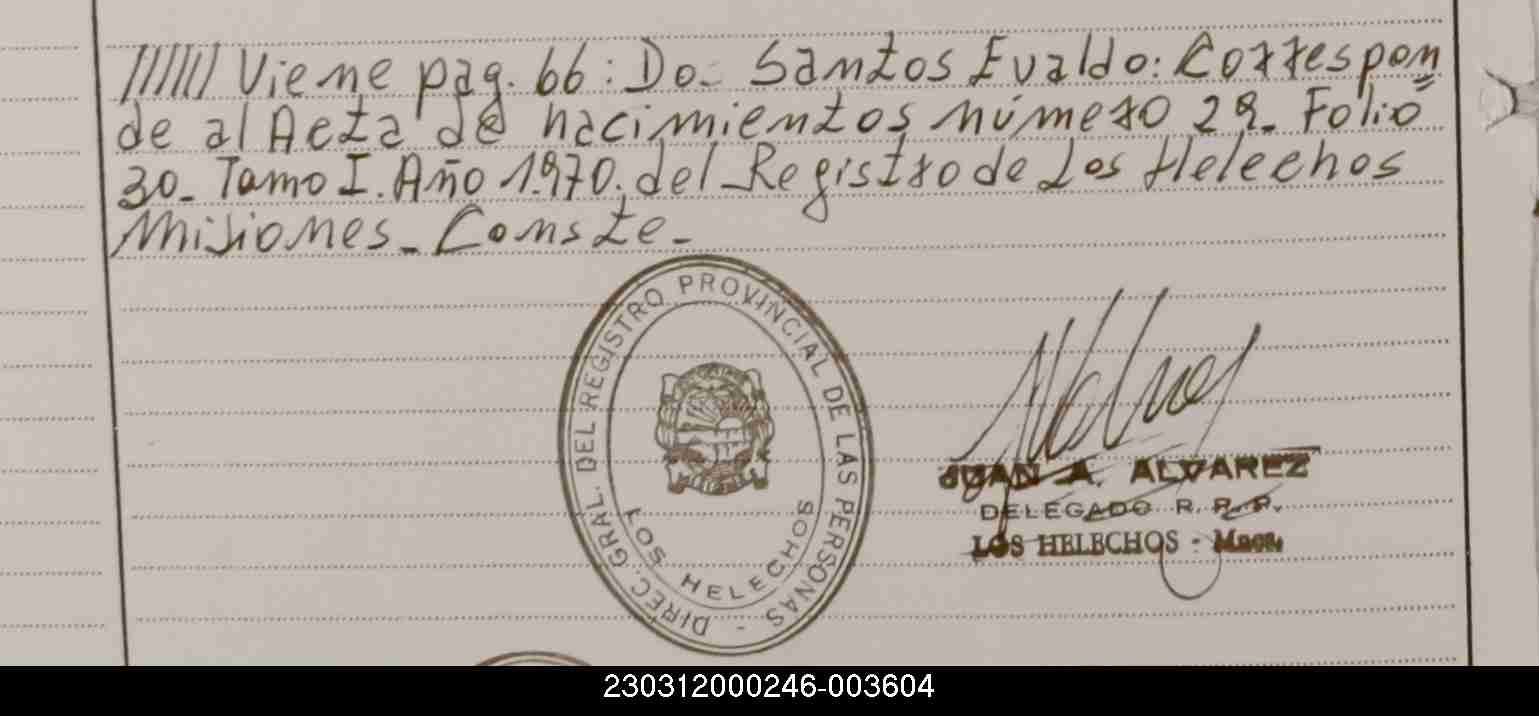 ////// Viene pag. 66: Do- Santos Evaldo: Correspon
de al Acta de nacimientos número 29- Folio
30- Tomo I. Año 1.970. del Registro de Los Helechos
Misiones- Conste-
DIREC. GRAL. DEL REGISTRO PROVINCIAL DE LAS PERSONAS -
LOS HELECHOS
JUAN A. ALVAREZ
DELEGADO R. P. P.
LOS HELECHOS - Mnes.
230312000246-003604